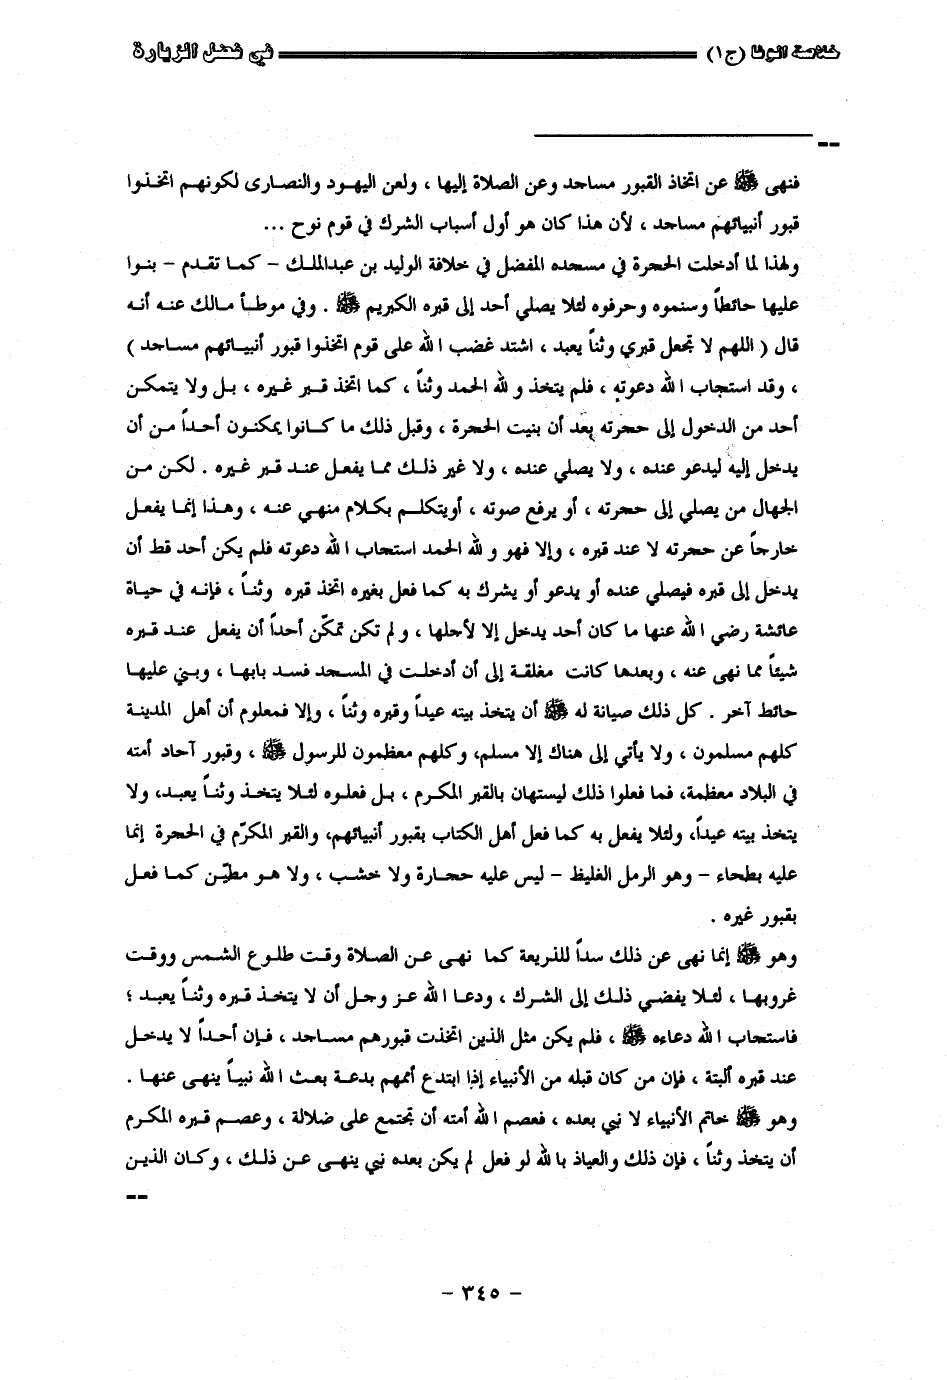 خلاصة الوفا (ج١) في فضل الزيارة
--
فنهى ﷺ عن اتخاذ القبور مساجد وعن الصلاة إليها ، ولعن اليهود والنصارى لكونهم اتخذوا
قبور أنبيائهم مساجد ، لأن هذا كان هو أول أسباب الشرك في قوم نوح ...
ولهذا لما أدخلت الحجرة في مسجده المفضل في خلافة الوليد بن عبدالملك – كما تقدم – بنوا
عليها حائطاً وسنموه وحرفوه لئلا يصلي أحد إلى قبره الكبريم ﷺ . وفي موطأ مالك عنه أنه
قال ( اللهم لا تجعل قبري وثناً يعبد ، اشتد غضب الله على قوم اتخذوا قبور أنبيائهم مساجد )
، وقد استجاب الله دعوته ، فلم يتخذ و لله الحمد وثناً ، كما اتخذ قبر غيره ، بل ولا يتمكن
أحد من الدخول إلى حجرته بعد أن بنيت الحجرة ، وقبل ذلك ما كانوا يمكنون أحداً من أن
يدخل إليه ليدعو عنده ، ولا يصلي عنده ، ولا غير ذلك مما يفعل عند قبر غيره . لكن من
الجهال من يصلي إلى حجرته ، أو يرفع صوته ، أويتكلم بكلام منهي عنه ، وهذا إنما يفعل
خارجاً عن حجرته لا عند قبره ، وإلا فهو و لله الحمد استجاب الله دعوته فلم يكن أحد قط أن
يدخل إلى قبره فيصلي عنده أو يدعو أو يشرك به كما فعل بغيره اتخذ قبره وثناً ، فإنه في حياة
عائشة رضي الله عنها ما كان أحد يدخل إلا لأجلها ، و لم تكن تمكّن أحداً أن يفعل عند قبره
شيئاً مما نهى عنه ، وبعدها كانت مغلقة إلى أن أدخلت في المسجد فسد بابها ، وبني عليها
حائط آخر . كل ذلك صيانة له ﷺ أن يتخذ بيته عيداً وقبره وثناً ، وإلا فمعلوم أن أهل المدينة
كلهم مسلمون ، ولا يأتي إلى هناك إلا مسلم، وكلهم معظمون للرسول ﷺ ، وقبور آحاد أمته
في البلاد معظمة، فما فعلوا ذلك ليستهان بالقبر المكرم ، بل فعلوه لئلا يتخذ وثناً يعبد، ولا
يتخذ بيته عيداً، ولئلا يفعل به كما فعل أهل الكتاب بقبور أنبيائهم، والقبر المكرّم في الحجرة إنما
عليه بطحاء – وهو الرمل الغليظ – ليس عليه حجارة ولا خشب ، ولا هو مطيّن كما فعل
بقبور غيره .
وهو ﷺ إنما نهى عن ذلك سداً للذريعة كما نهى عن الصلاة وقت طلوع الشمس ووقت
غروبها ، لئلا يفضي ذلك إلى الشرك ، ودعا الله عز وجل أن لا يتخذ قبره وثناً يعبد ؛
فاستجاب الله دعاءه ﷺ ، فلم يكن مثل الذين اتخذت قبورهم مساجد ، فإن أحداً لا يدخل
عند قبره ألبتة ، فإن من كان قبله من الأنبياء إذا ابتدع أممهم بدعة بعث الله نبياً ينهى عنها .
وهو ﷺ خاتم الأنبياء لا نبي بعده ، فعصم الله أمته أن تجتمع على ضلالة ، وعصم قبره المكرم
أن يتخذ وثناً ، فإن ذلك والعياذ بالله لو فعل لم يكن بعده نبي ينهى عن ذلك ، وكان الذين
--
– ٣٤٥ –